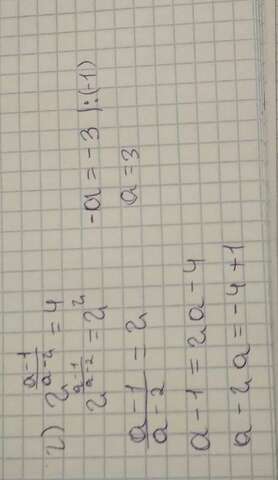 2) 2^{\frac{a-1}{a-2}} = 4
2^{\frac{a-1}{a-2}} = 2^2
\frac{a-1}{a-2} = 2
a - 1 = 2a - 4
a - 2a = -4 + 1
-a = -3 |:(-1)
a = 3